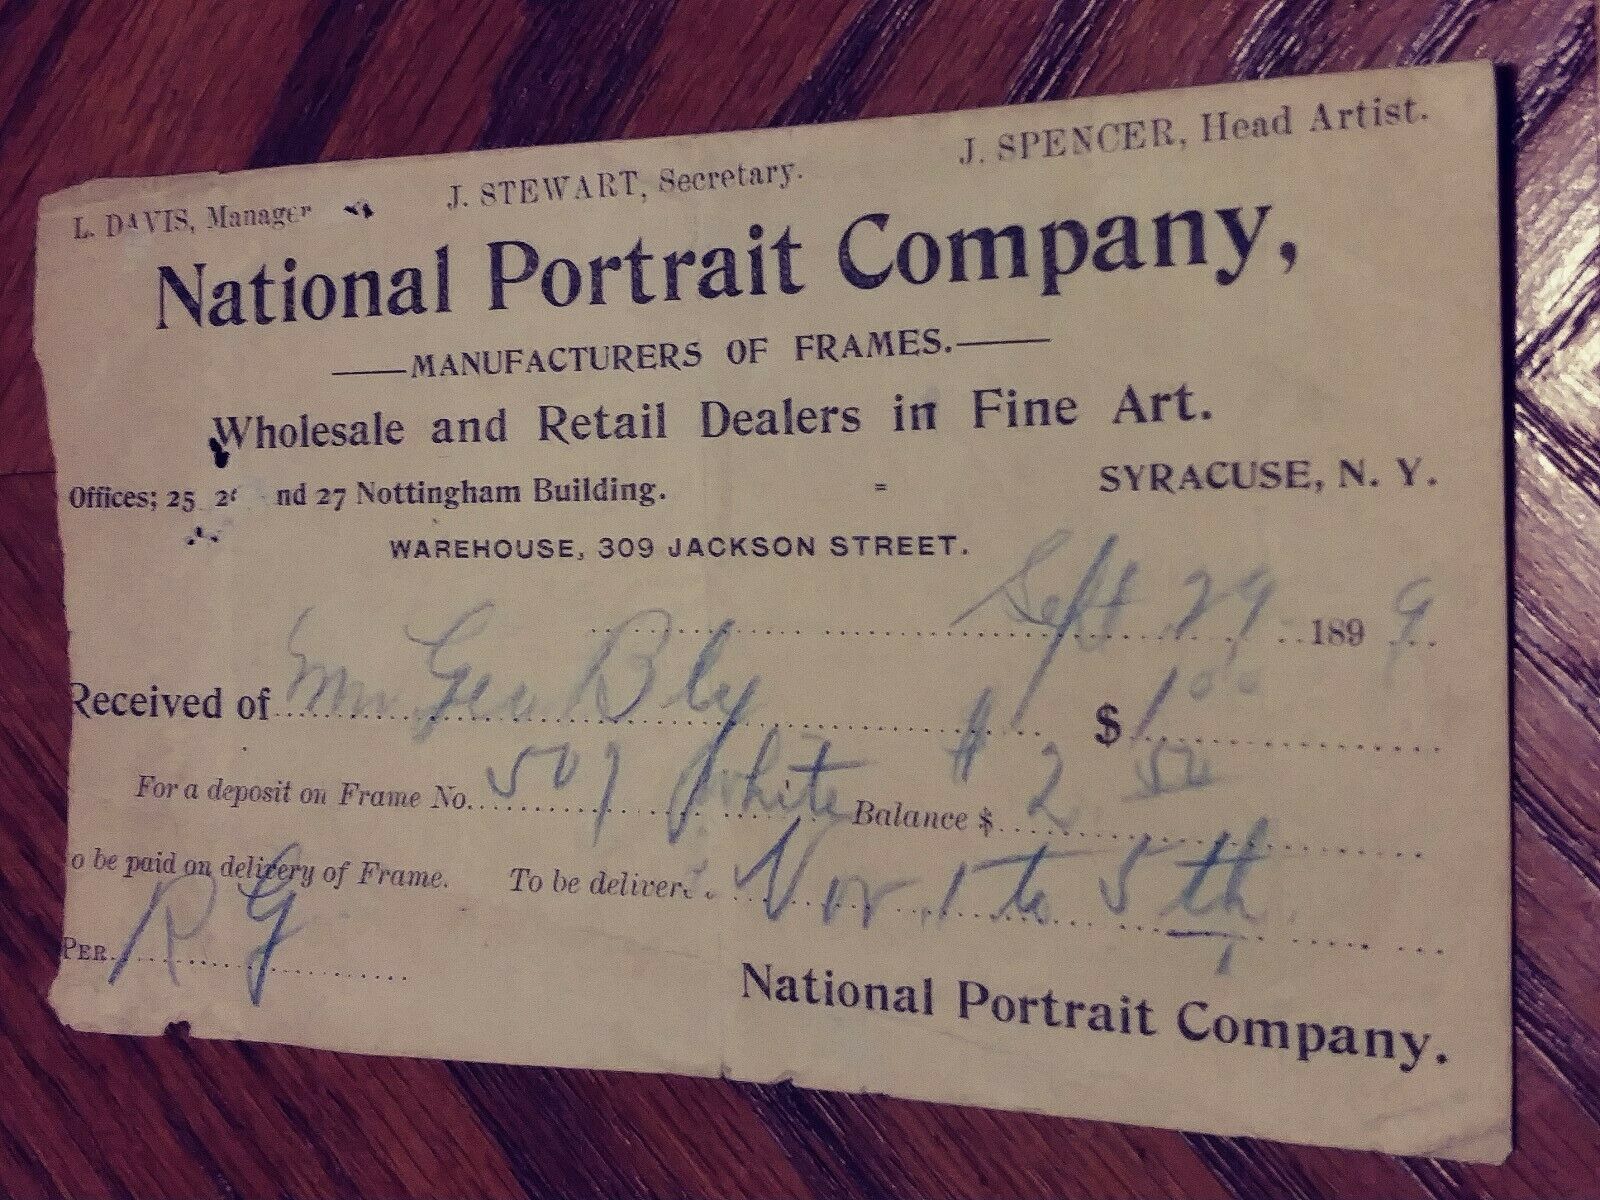 L. DAVIS, Manager J. STEWART, Secretary. J. SPENCER, Head Artist.
National Portrait Company,
MANUFACTURERS OF FRAMES.
Wholesale and Retail Dealers in Fine Art.
Offices; 25 2 nd 27 Nottingham Building. = SYRACUSE, N. Y.
WAREHOUSE, 309 JACKSON STREET.
Sept 29 1899
Received of Geo Bly $ 1 00
For a deposit on Frame No. 507 White Balance $ $ 2 50
o be paid on delivery of Frame. To be deliver Nov 1 to 5 th
PER R G
National Portrait Company.